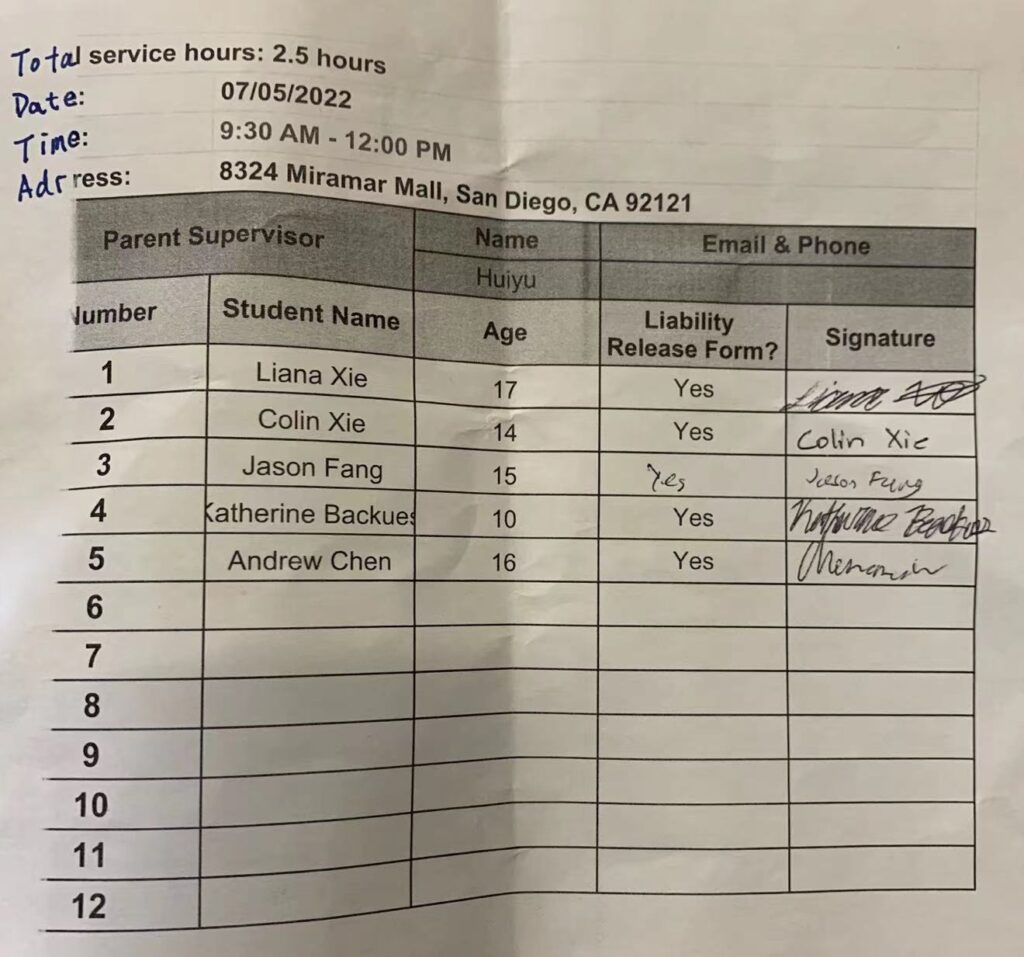 Total service hours: 2.5 hours
Date: 07/05/2022
Time: 9:30 AM - 12:00 PM
Adrress: 8324 Miramar Mall, San Diego, CA 92121
Parent Supervisor Name Email & Phone
Huiyu
Number Student Name Age Liability Release Form? Signature
1 Liana Xie 17 Yes Liana
2 Colin Xie 14 Yes Colin Xie
3 Jason Fang 15 Yes Jason Fang
4 Katherine Backues 10 Yes Katherine Backues
5 Andrew Chen 16 Yes
6
7
8
9
10
11
12